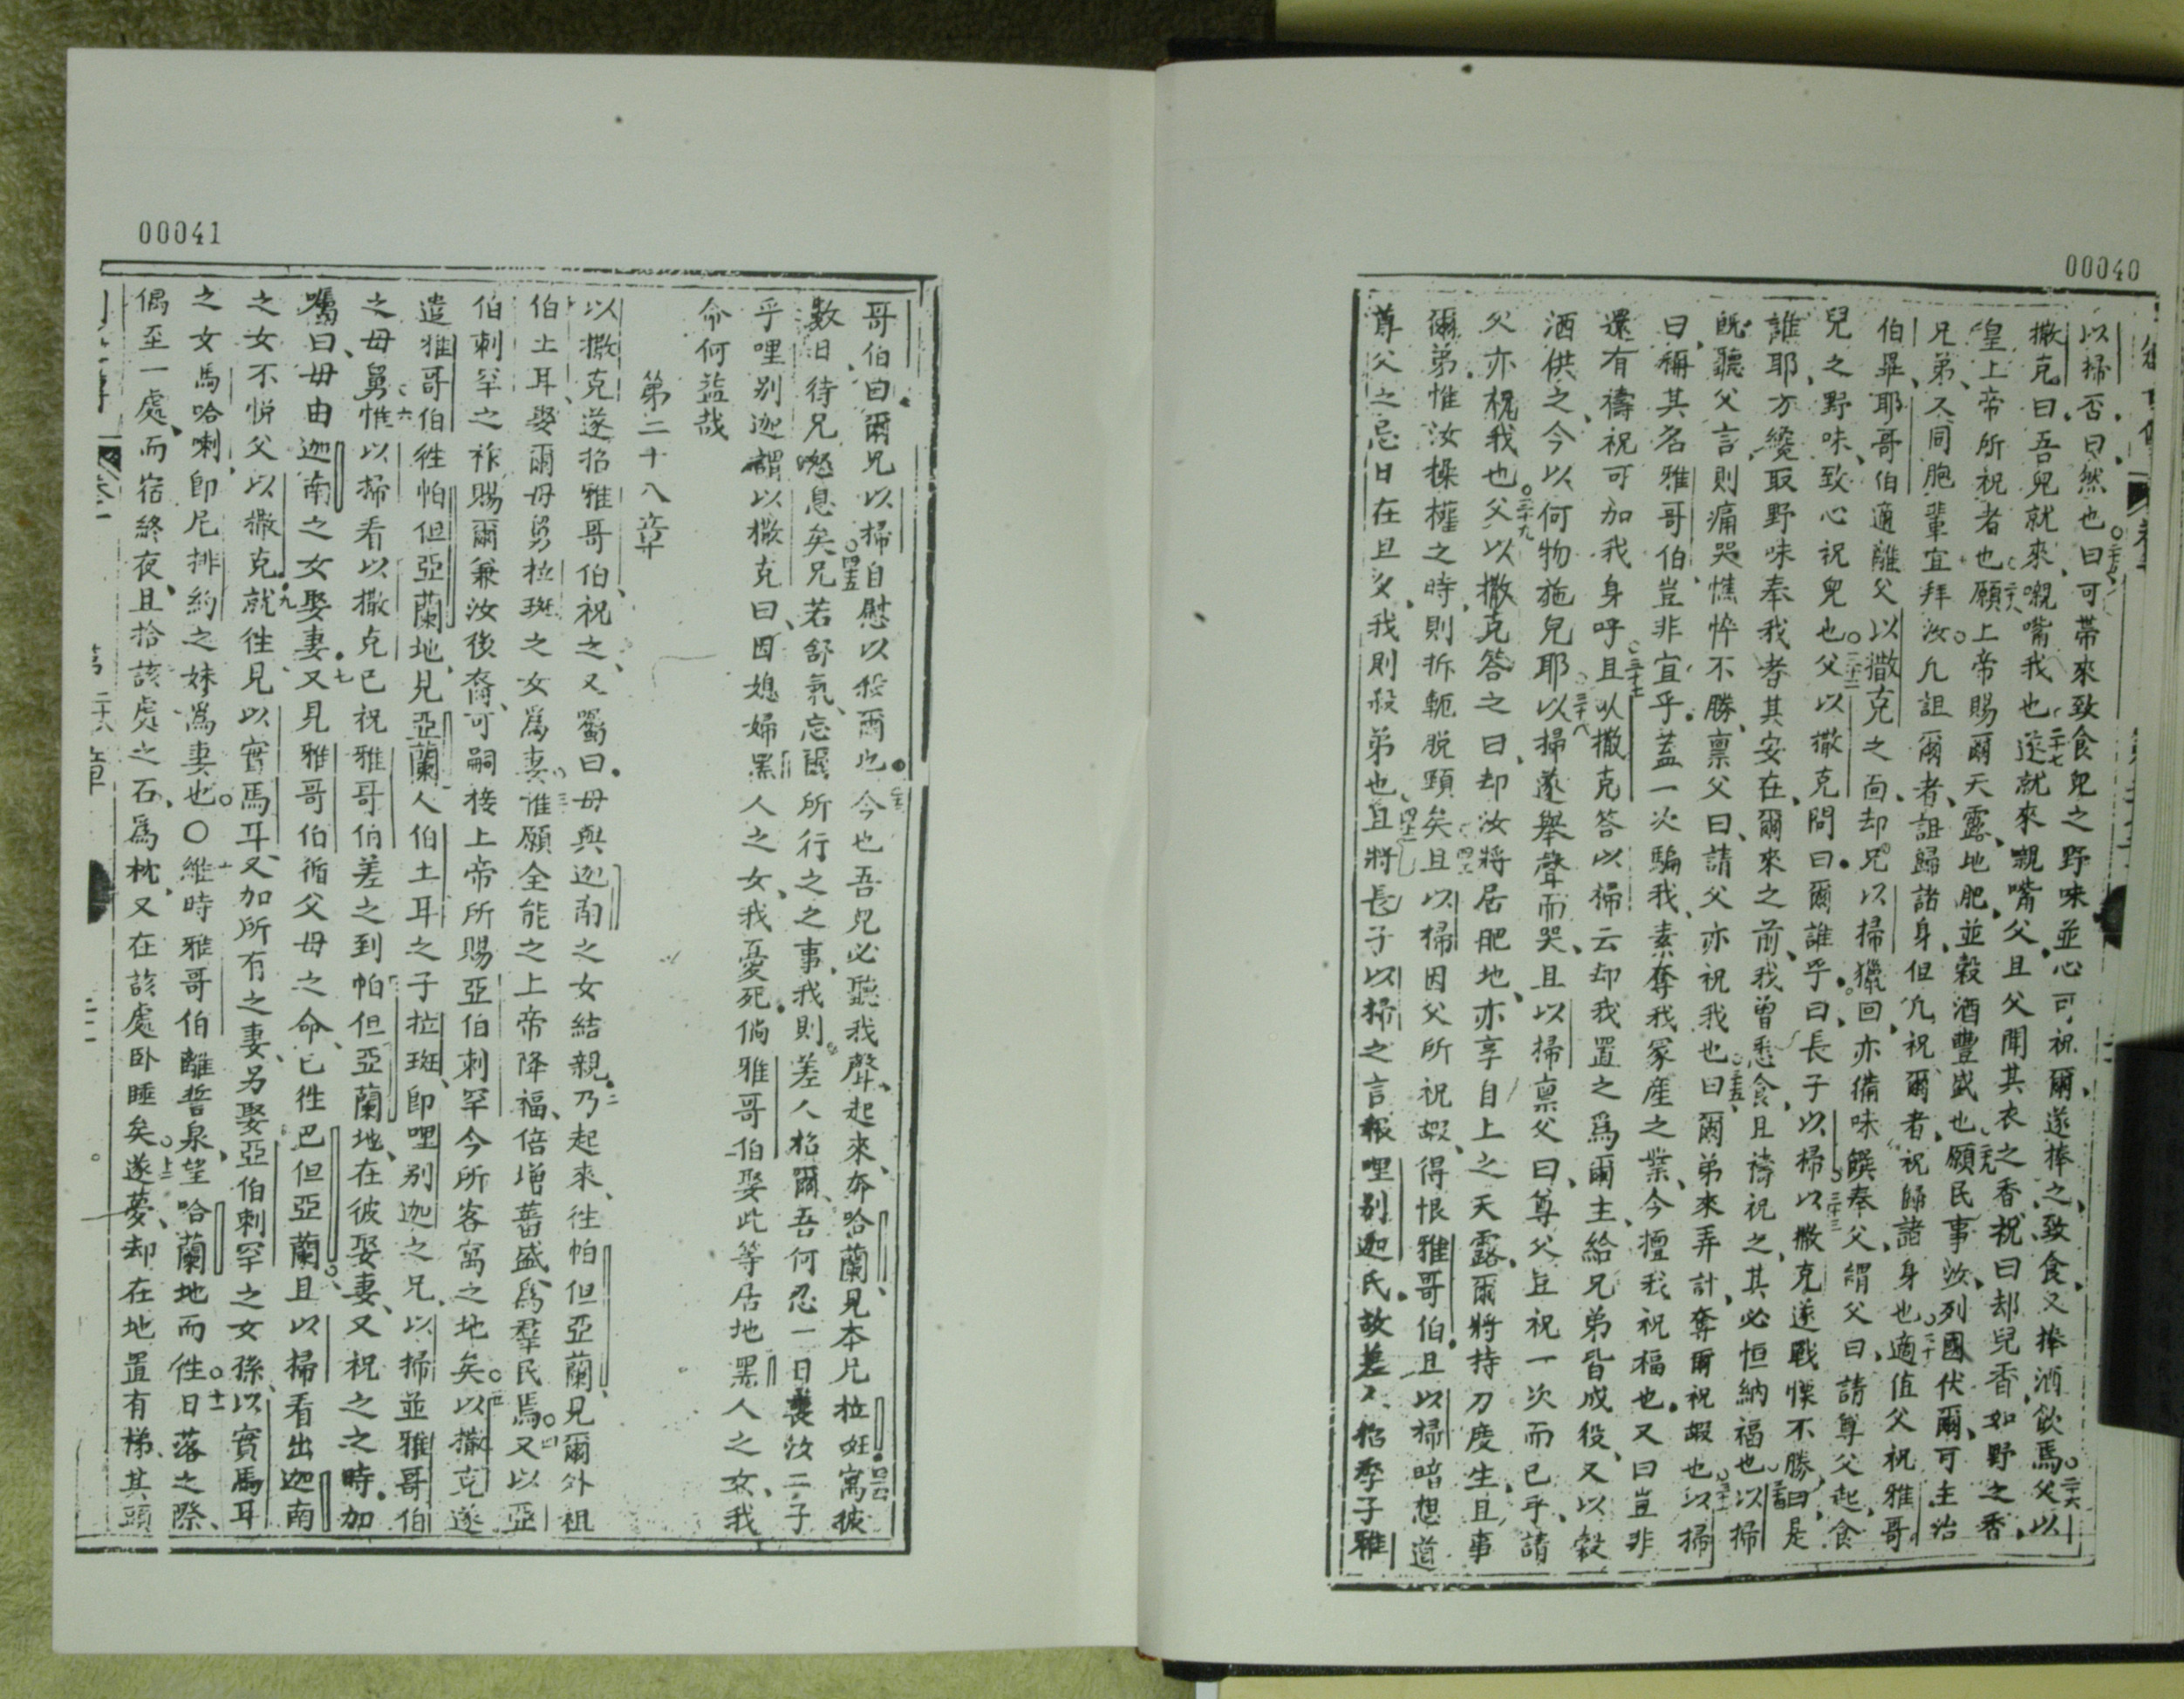 00040
以掃否曰然也曰可帶來致食兒之野味並心可祝爾遂捧之致食又捧酒飲焉父以
撒克曰吾兒就來嚫嘴我也遂就來嚫嘴父且父聞其衣之香祝曰却兒香如野之香
皇上帝所祝者也願上帝賜爾天露地肥並穀酒豐盛也願民事汝列國伏爾可主治
兄弟又同胞輩宜拜汝凢詛爾者詛歸諸身但凢祝爾者祝歸諸身也適值父祝雅哥
伯畢耶哥伯適離父以撒克之面却兄以掃獵回亦備味饌奉父謂父曰請尊父起食
兒之野味致心祝兒也父以撒克問曰爾誰乎曰長子以掃以撒克遂戰慄不勝曰是
誰耶方纔取野味奉我者其安在爾來之前我曾悉食且禱祝之其必恒納福也以掃
旣聽父言則痛哭憔悴不勝禀父曰請父亦祝我也曰爾弟來弄計奪爾祝嘏也以掃
曰稱其名雅哥伯豈非宜乎葢一次騙我素奪我冢產之業今擅我祝福也又曰豈非
還有禱祝可加我身呼且以撒克答以掃云却我置之爲爾主給兄弟皆成役又以穀
酒供之今以何物施兒耶以掃遂舉聲而哭且以掃禀父曰尊父豈祝一次而已乎請
父亦祝我也父以撒克答之曰却汝將居肥地亦享自上之天露爾將持刀度生且事
爾弟惟汝操權之時則拆軛脱頸矣且以掃因父所祝嘏得恨雅哥伯且以掃暗想道
尊父之忌日在且夕我則殺弟也且將長子以掃之言報哩别迦氏故差人招季子雅
00041
哥伯曰爾兄以掃自慰以殺爾也今也吾兒必聽我聲起來奔哈蘭見本兄拉班寓彼
數日待兄怒息矣兄若舒氣忘爾所行之事我則差人招爾吾何忍一日喪汝二子
乎哩别迦謂以撒克曰因媳婦黑人之女我憂死倘雅哥伯娶此等居地黑人之女我
命何益哉
第二十八章
以撒克遂招雅哥伯祝之又囑曰毋與迦南之女結親乃起來徃帕但亞蘭見爾外祖
伯土耳娶爾母舅拉班之女爲妻惟願全能之上帝降福倍增蕃盛爲羣民焉又以亞
伯剌罕之祚賜爾兼汝後裔可嗣接上帝所賜亞伯剌罕今所客寓之地矣以撒克遂
遣雅哥伯徃帕但亞蘭地見亞蘭人伯土耳之子拉班即哩别迦之兄以掃並雅哥伯
之母舅惟以掃看以撒克已祝雅哥伯差之到帕但亞蘭地在彼娶妻又祝之之時加
囑曰毋由迦南之女娶妻又見雅哥伯循父母之命已徃巴但亞蘭且以掃看出迦南
之女不悅父以撒克就徃見以實馬耳又加所有之妻另娶亞伯剌罕之女孫以實馬耳
之女馬哈喇即尼排約之妹爲妻也〇維時雅哥伯離誓泉望哈蘭地而徃日落之際
偶至一處而宿終夜且拾該處之石爲枕又在該處卧睡矣遂夢却在地置有梯其頭
第二十八章